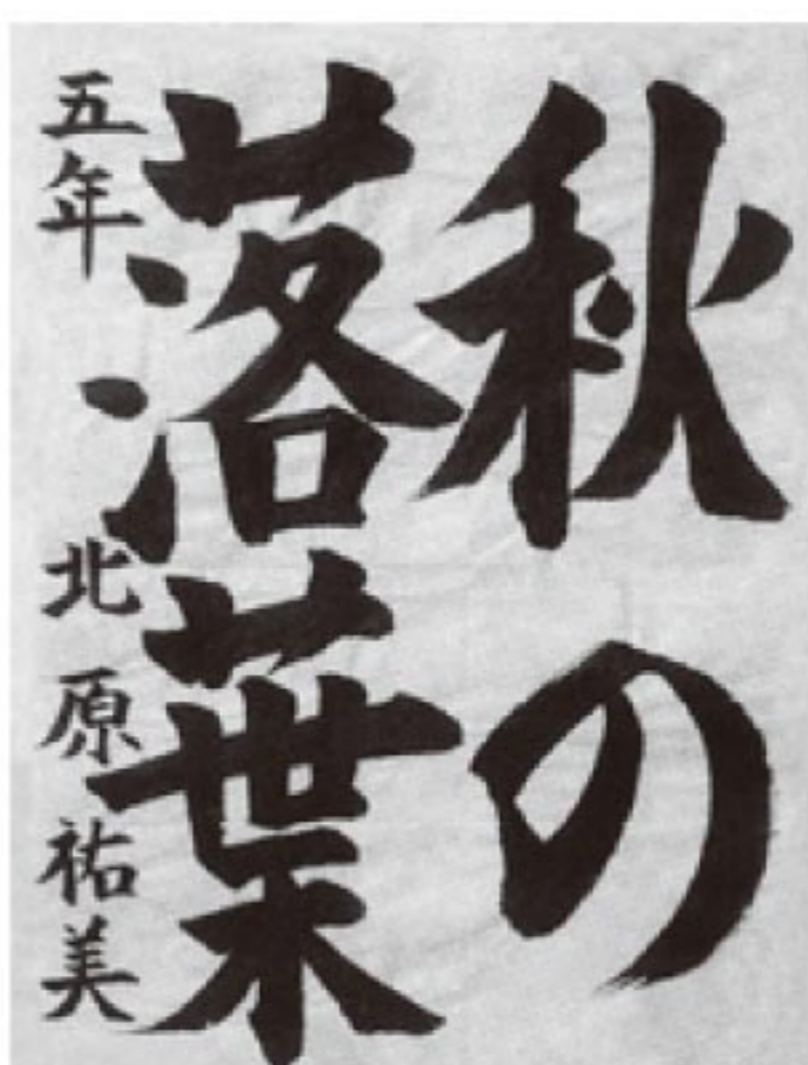 秋の
落葉
五年 北原祐美